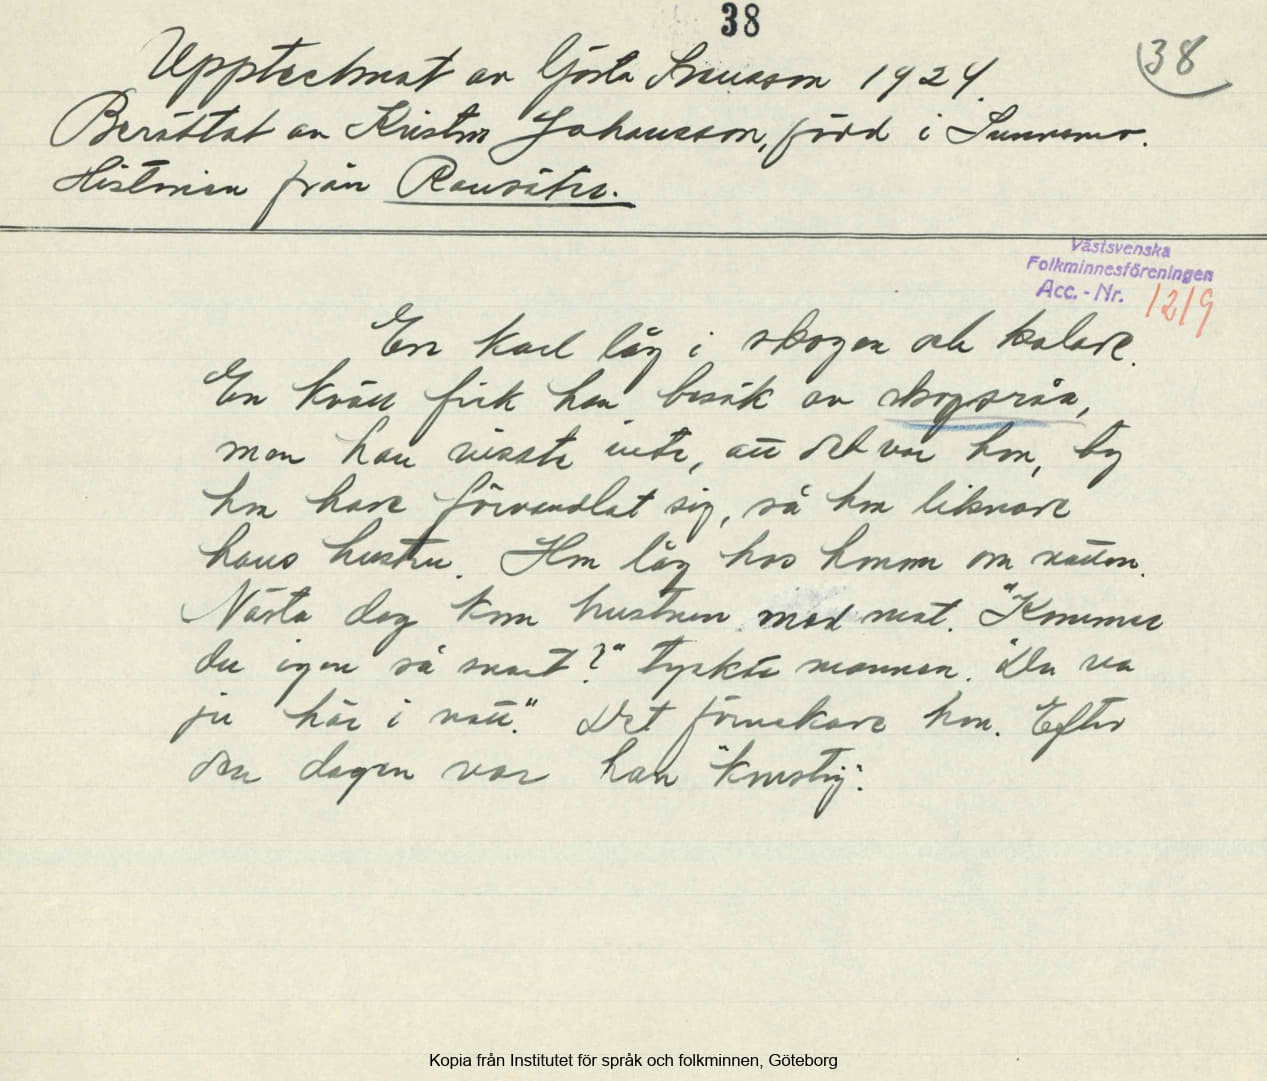 38
38
Upptecknat av Gösta Svensson 1924.
Berättat av Kristin Johansson, född i Sunnemo.
Historien från Ransäter.
Västsvenska
Folkminnesföreningen
Acc. - Nr. 1219
En karl låg i skogen och kolade.
En kväll fick han besök av skogsrån,
men han visste inte, att det var hon, ty
hon hade förvandlat sig, så hon liknade
hans hustru. Hon låg hos honom om natten.
Nästa dag kom hustrun med mat. "Kommer
du igen så snart?" tyckte mannen. "Du va
ju här i natt." Det förnekade hon. Efter
den dagen var han "konstig".
Kopia från Institutet för språk och folkminnen, Göteborg